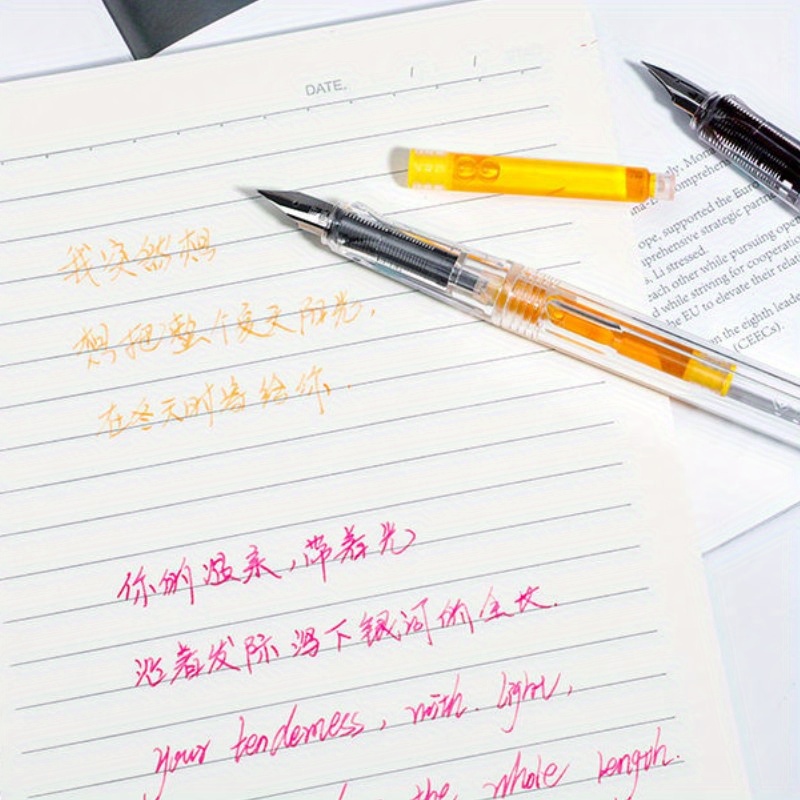 DATE. / /
我突然想
想把整个夏天阳光,
在冬天时寄给你.
你的温柔,带着光
沿着发际泻下银河的全长.
your tenderness, with. light,
the whole length.
ly, Mon
comprehens
ope, supported the Euro
prehensive strategic partn
s, Li stressed.
each other while pursuing open
d while striving for cooperation
the EU to elevate their relat
n the eighth leade
(CEECs).